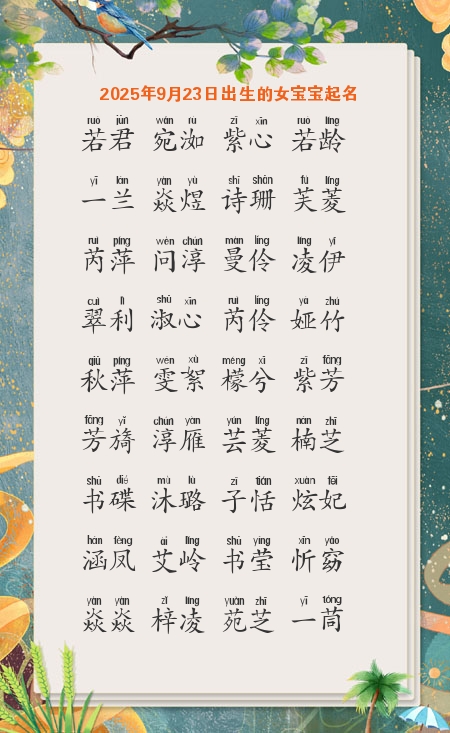 2025年9月23日出生的女宝宝起名
ruò jūn wǎn rù zǐ xīn ruò líng
若君 宛洳 紫心 若龄
yī lán yàn yù shī shān fú líng
一兰 焱煜 诗珊 芙菱
ruì píng wèn chún màn líng líng yī
芮萍 问淳 曼伶 凌伊
cuì lì shū xīn ruì líng yà zhú
翠利 淑心 芮伶 娅竹
qiū píng wén xù méng xī zǐ fāng
秋萍 雯絮 檬兮 紫芳
fāng yǐ chún yàn yún líng nán zhī
芳旖 淳雁 芸菱 楠芝
shū dié mù lù zǐ tián xuàn fēi
书碟 沐璐 子恬 炫妃
hán fèng ài líng shū yíng xīn yǎo
涵凤 艾岭 书莹 忻窈
yàn yàn zǐ líng yuàn zhī yī tóng
焱焱 梓凌 苑芝 一茼